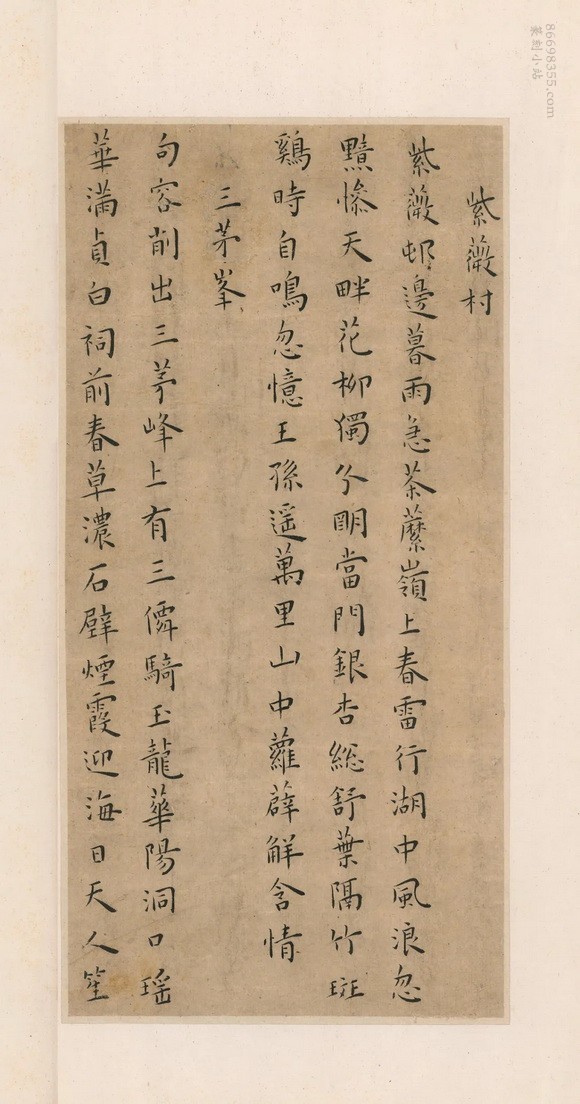 紫薇村
紫薇邨邊暮雨急荼蘼嶺上春雷行湖中風浪忽
黯慘天畔花柳獨分明當門銀杏總舒葉隔竹斑
鷄時自鳴忽憶王孫遥萬里山中蘿薜解含情
三茅峯
句容削出三茅峰上有三僊騎玉龍華陽洞口瑶
華滿貞白祠前春草濃石壁煙霞迎海日天人笙
86698355.com
篆刻小站